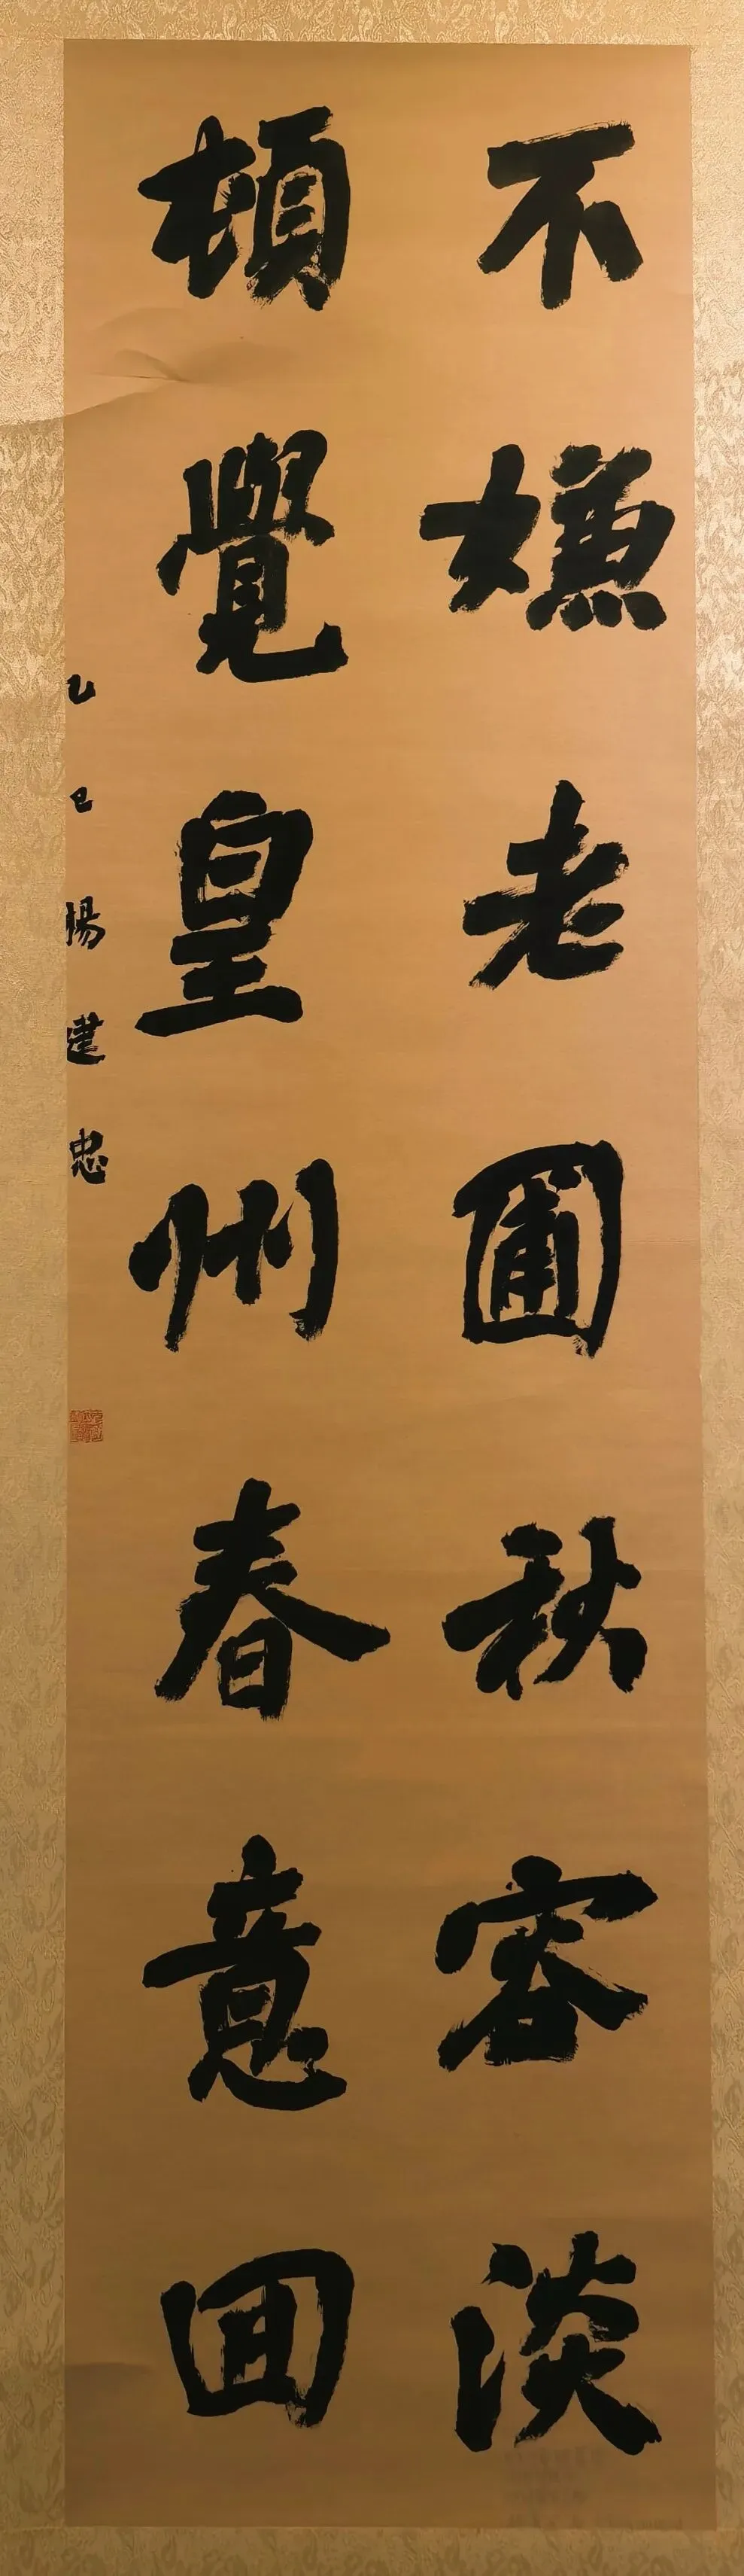 不嫌老圃秋容淡
頓覺皇州春意回
乙巳楊建忠